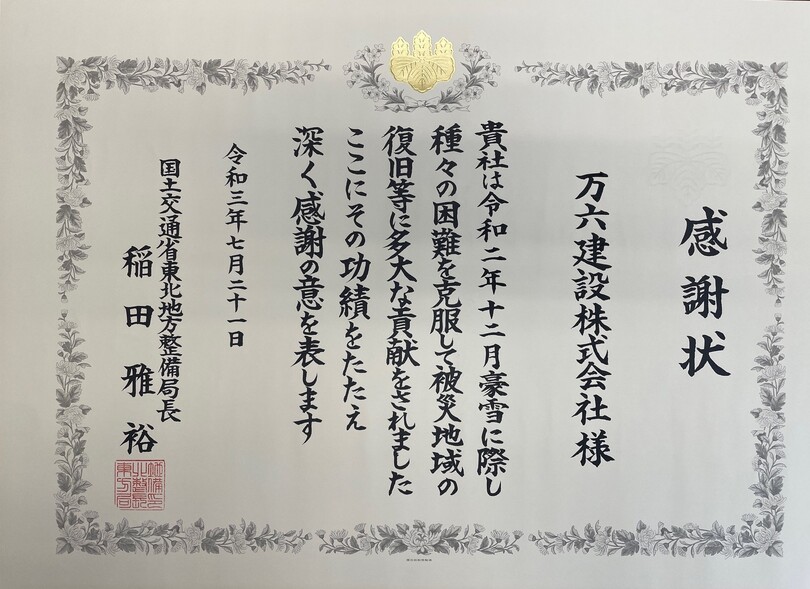 感謝状
万六建設株式会社様
貴社は令和二年十二月豪雪に際し
種々の困難を克服して被災地域の
復旧等に多大な貢献をされました
ここにその功績をたたえ
深く感謝の意を表します
令和三年七月二十一日
国土交通省東北地方整備局長
稲田雅裕